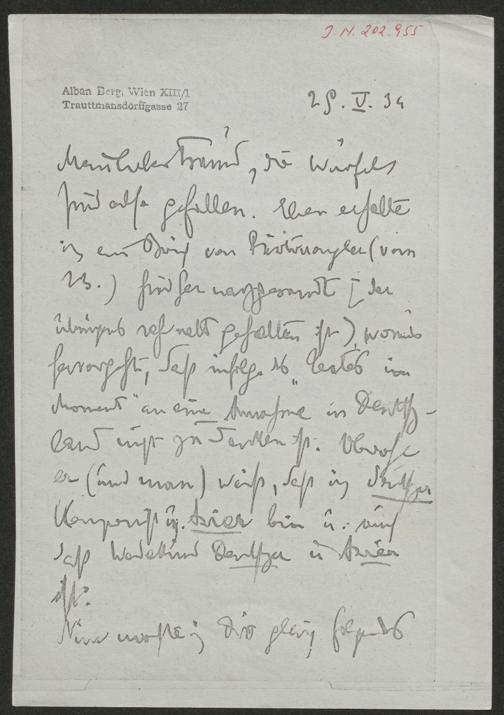 J.N. 202.955
Alban Berg, Wien XIII/1
Trauttmansdorffgasse 27
28. V. 34
Mein lieber Freund, die Würfels
sind also gefallen. Eben erhalte
ich ein Brief von Furtwängler (vom
23.) hierher nachgesandt [der
übrigens sehr nett gehalten ist), woraus
hervorgeht, daß infolge des "Textes im
Moment" an eine Annahme in Deutsch-
land nicht zu denken ist. Obwohl
er (und man) weiß, daß ich deutscher
Komponist u. Arier bin u. auch
daß Wedekind Deutscher u Arier
ist.
Nun mußte ich Dir gleich folgendes